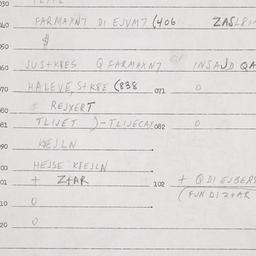 040 FARMAXN7 DI EJVM7 (406 ZASLBI
050
060 JUS+KBES Q FARMAXN7 INSAJD QA
070 HALEVE, S+KBE (838 071 0
080 REJXERT
081 TLIJET )-TLIJECAX 082 0
090 KEJLN
00 HEJSE KEJLN
01 + Z+AR 102 + Q DI EJBERS
(FUN DI Z+AR
10 0
20 0